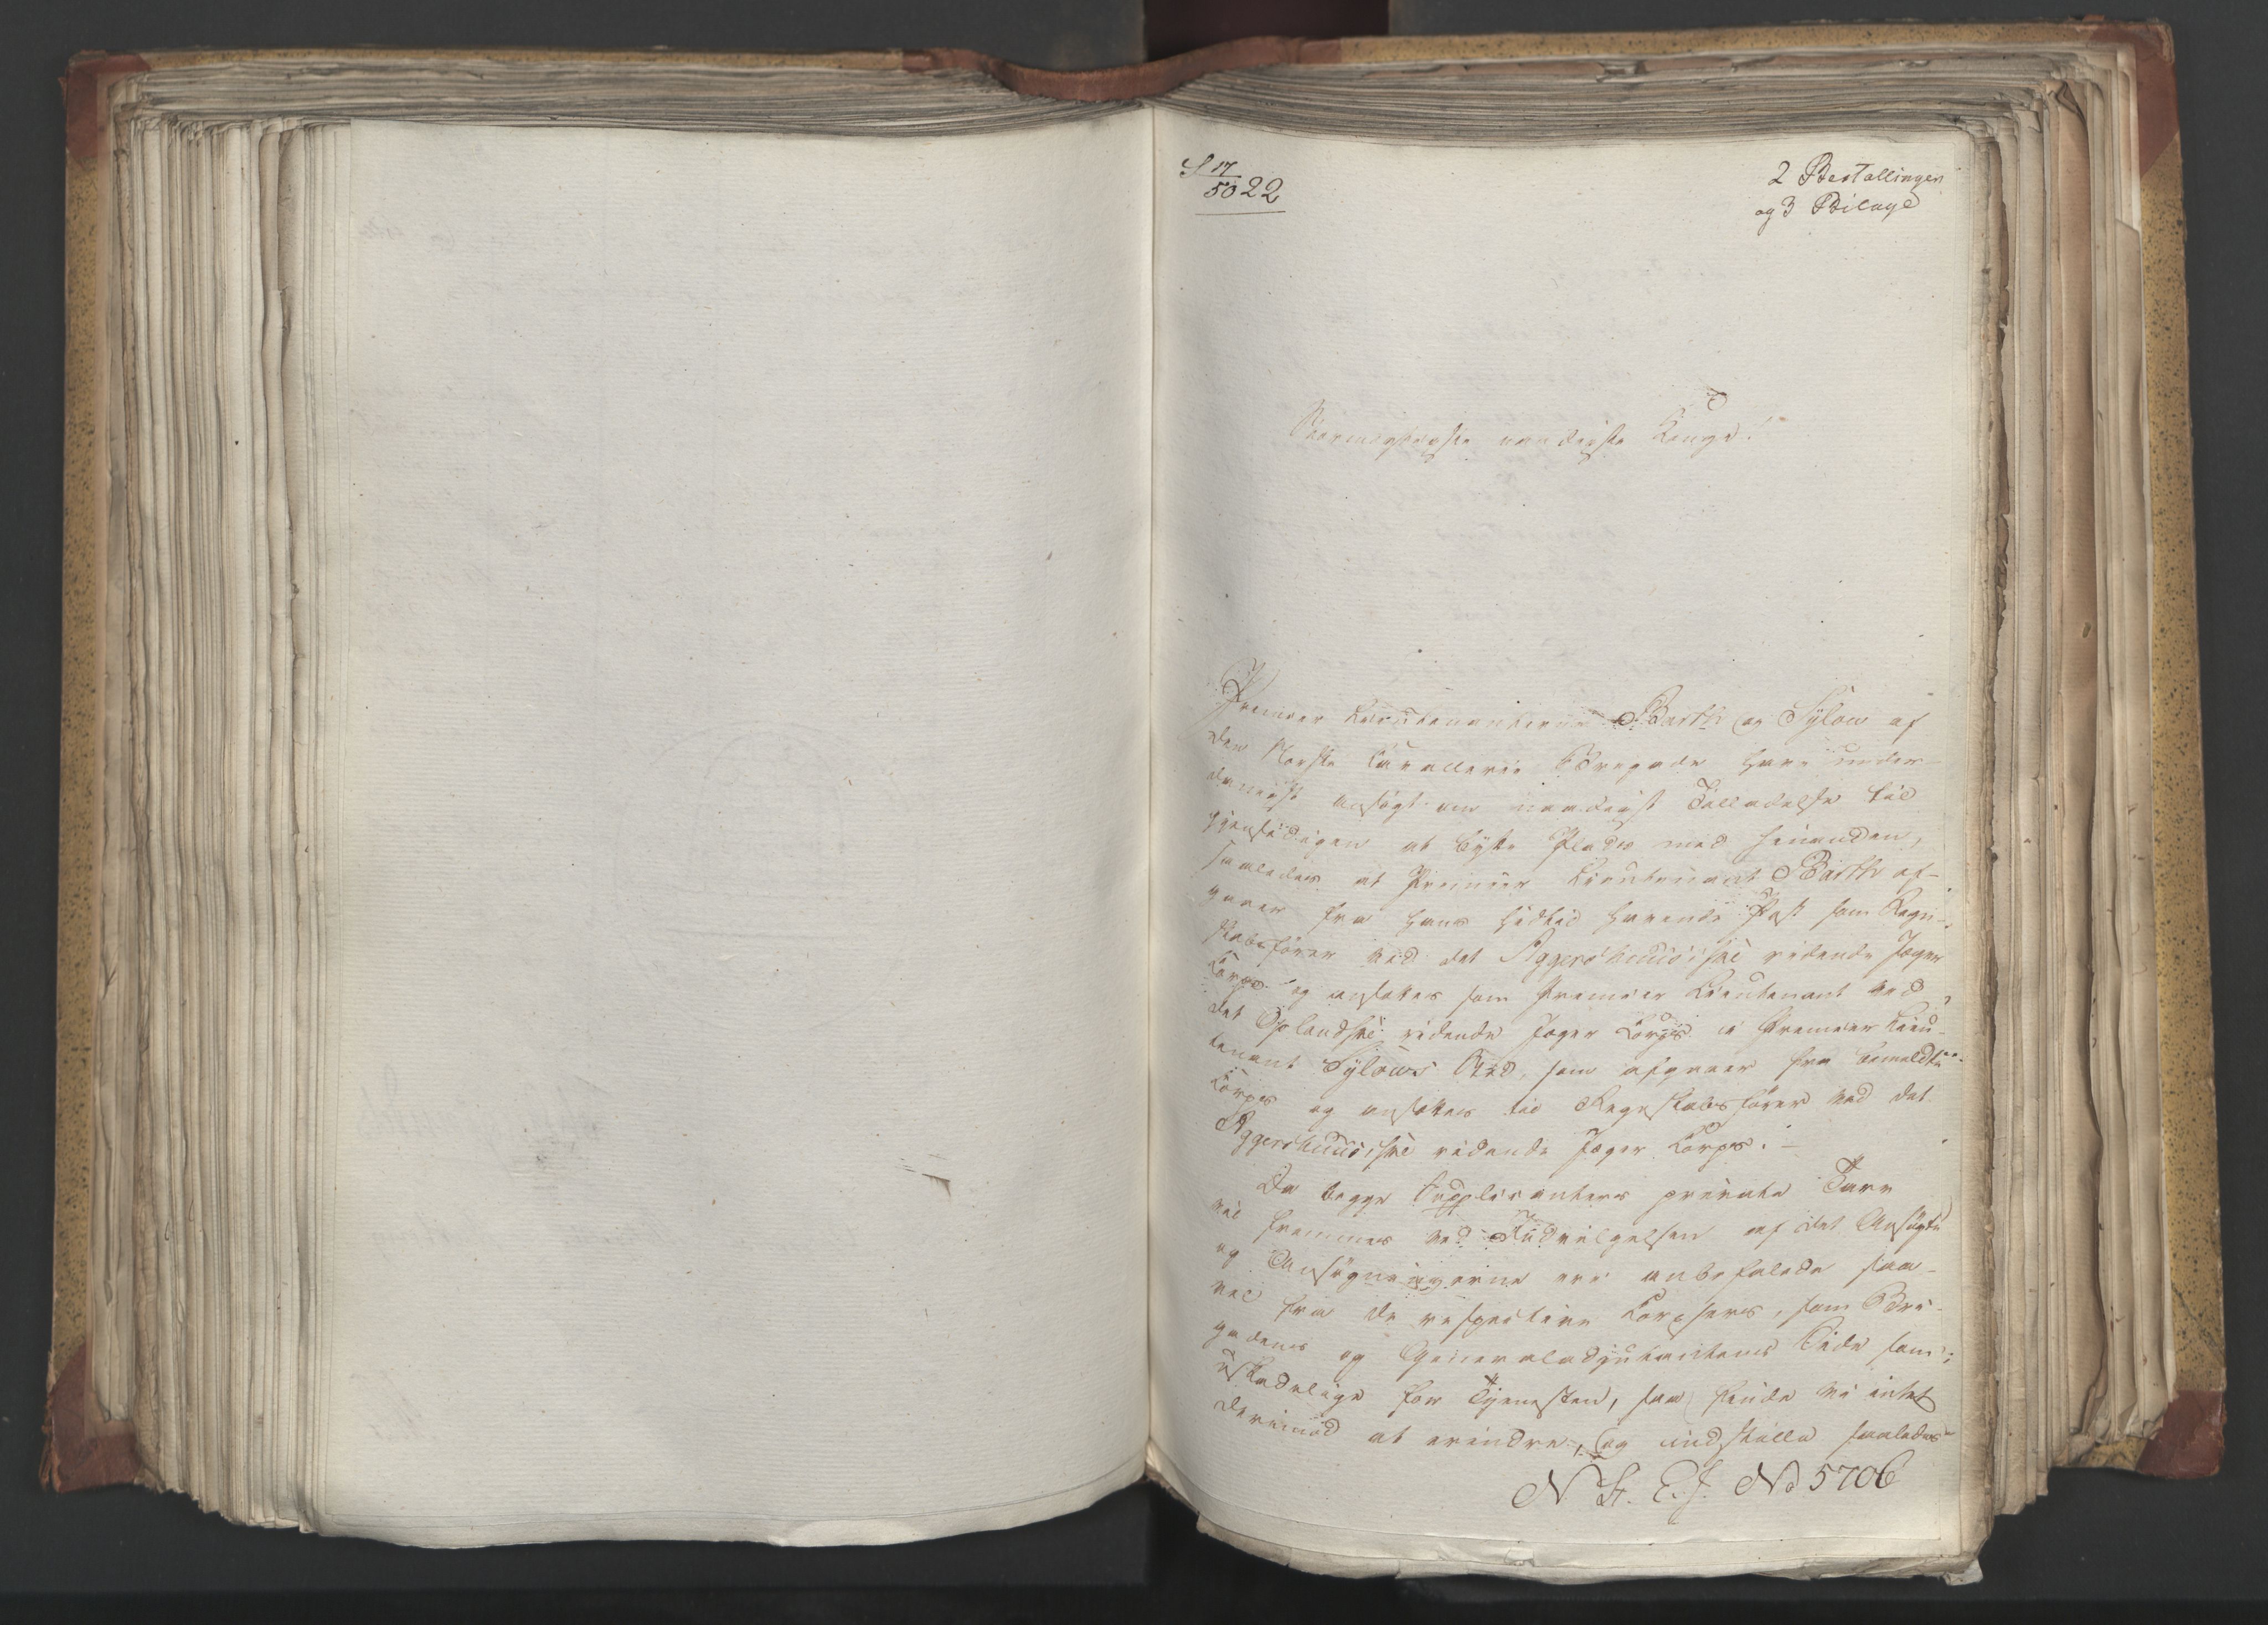 S 17
5022
2 Bestallinger
og 3 Bilage
Stormægtigste naadigste Konge!
Premier Lieutenanterne Barth og Sylow af
den Norske Cavallerie Brigade have under-
danigst ansøgt om naadigst Tilladelse til
gjensidigen at bytte Plads med hinanden,
saaledes at Premier Lieutenant Barth af-
gaaer fra hans hidtil havende Post som Regn-
skabsfører ved det Aggershuusiske ridende Jæger
Corps og ansættes som Premier Lieutenant ved
det Oplandske ridende Jæger Corps i Premier Lieu-
tenant Sylows Sted, som afgaaer fra bemeldte
Corps og ansættes til Regnskabsfører ved det
Aggershuusiske ridende Jæger Corps.
Da begge Supplicanters private Tarv
vil fremmes ved Indvilgelsen af det Ansøgte
og Ansøgningerne ere anbefalede saa-
vel fra de respective Corpsers, som Bri-
gadens og Generaladjutantens Side som
uskadelige for Tjenesten, saa finde vi intet
derimod at erindre, og indstille saaledes
N. St. E. J. No 5706